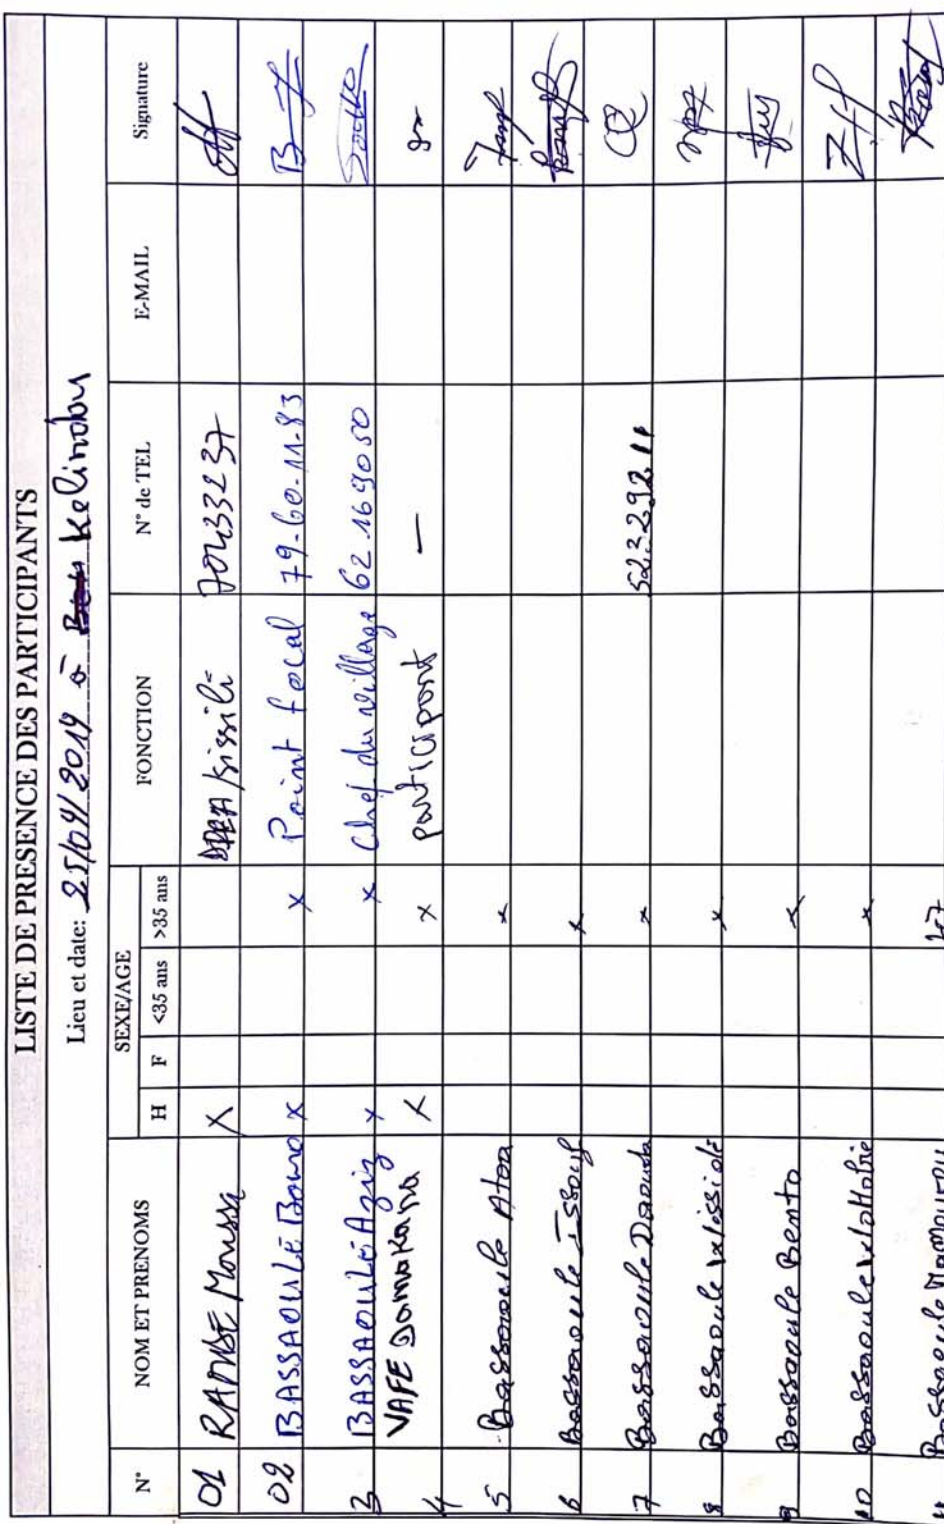 LISTE DE PRESENCE DES PARTICIPANTS
Lieu et date: 25/04/2019 à Kelindou
N° NOM ET PRENOMS SEXE/AGE FONCTION N° de TEL E-MAIL Signature
H F <35 ans >35 ans
01 Moussa X
02 BASSAOULÉ x x Point focal 79-60-11-83
3 BASSAOULÉ Aziz x x Chef du village 62 16 90 50
4 VAFE Damakana X x participant —
5 Bassaoule Atoa x
6 Bassaoule Issouf x
7 Bassaoule Daouda x 52 22 92 11
8 Bassaoule x
9 Bassaoule Bento x
10 Bassaoule x
11 Bassaoule Mamourou 47